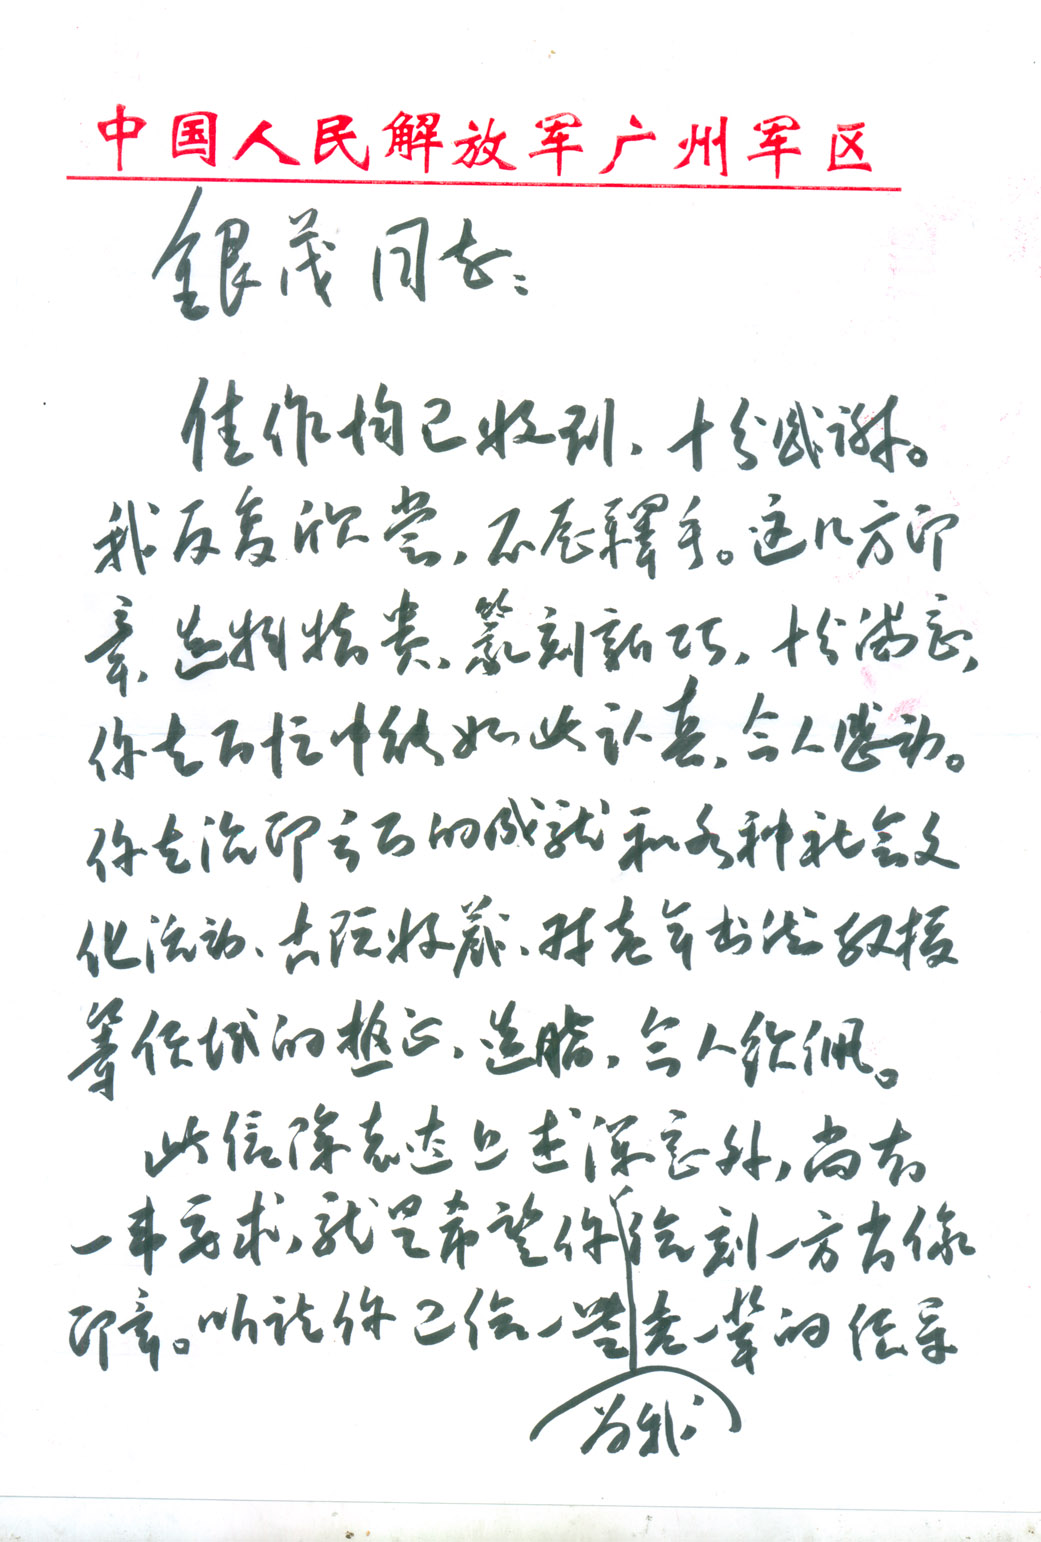 中国人民解放军广州军区
银茂同志：
佳作均已收到，十分感谢。
我反复欣赏，不忍释手。这几方印
章，选料精贵、篆刻新巧，十分满意，
你在百忙中能如此认真，令人感动。
你在治印方面的成就和各种社会文
化活动、古玩收藏、对老年书法教授
等领域的热心、造诣，令人钦佩。
此信除表达上述深意外，尚有
一事要求，就是希望你绘刻一方肖像
印章。听说你已给一些老一辈的领导
为我